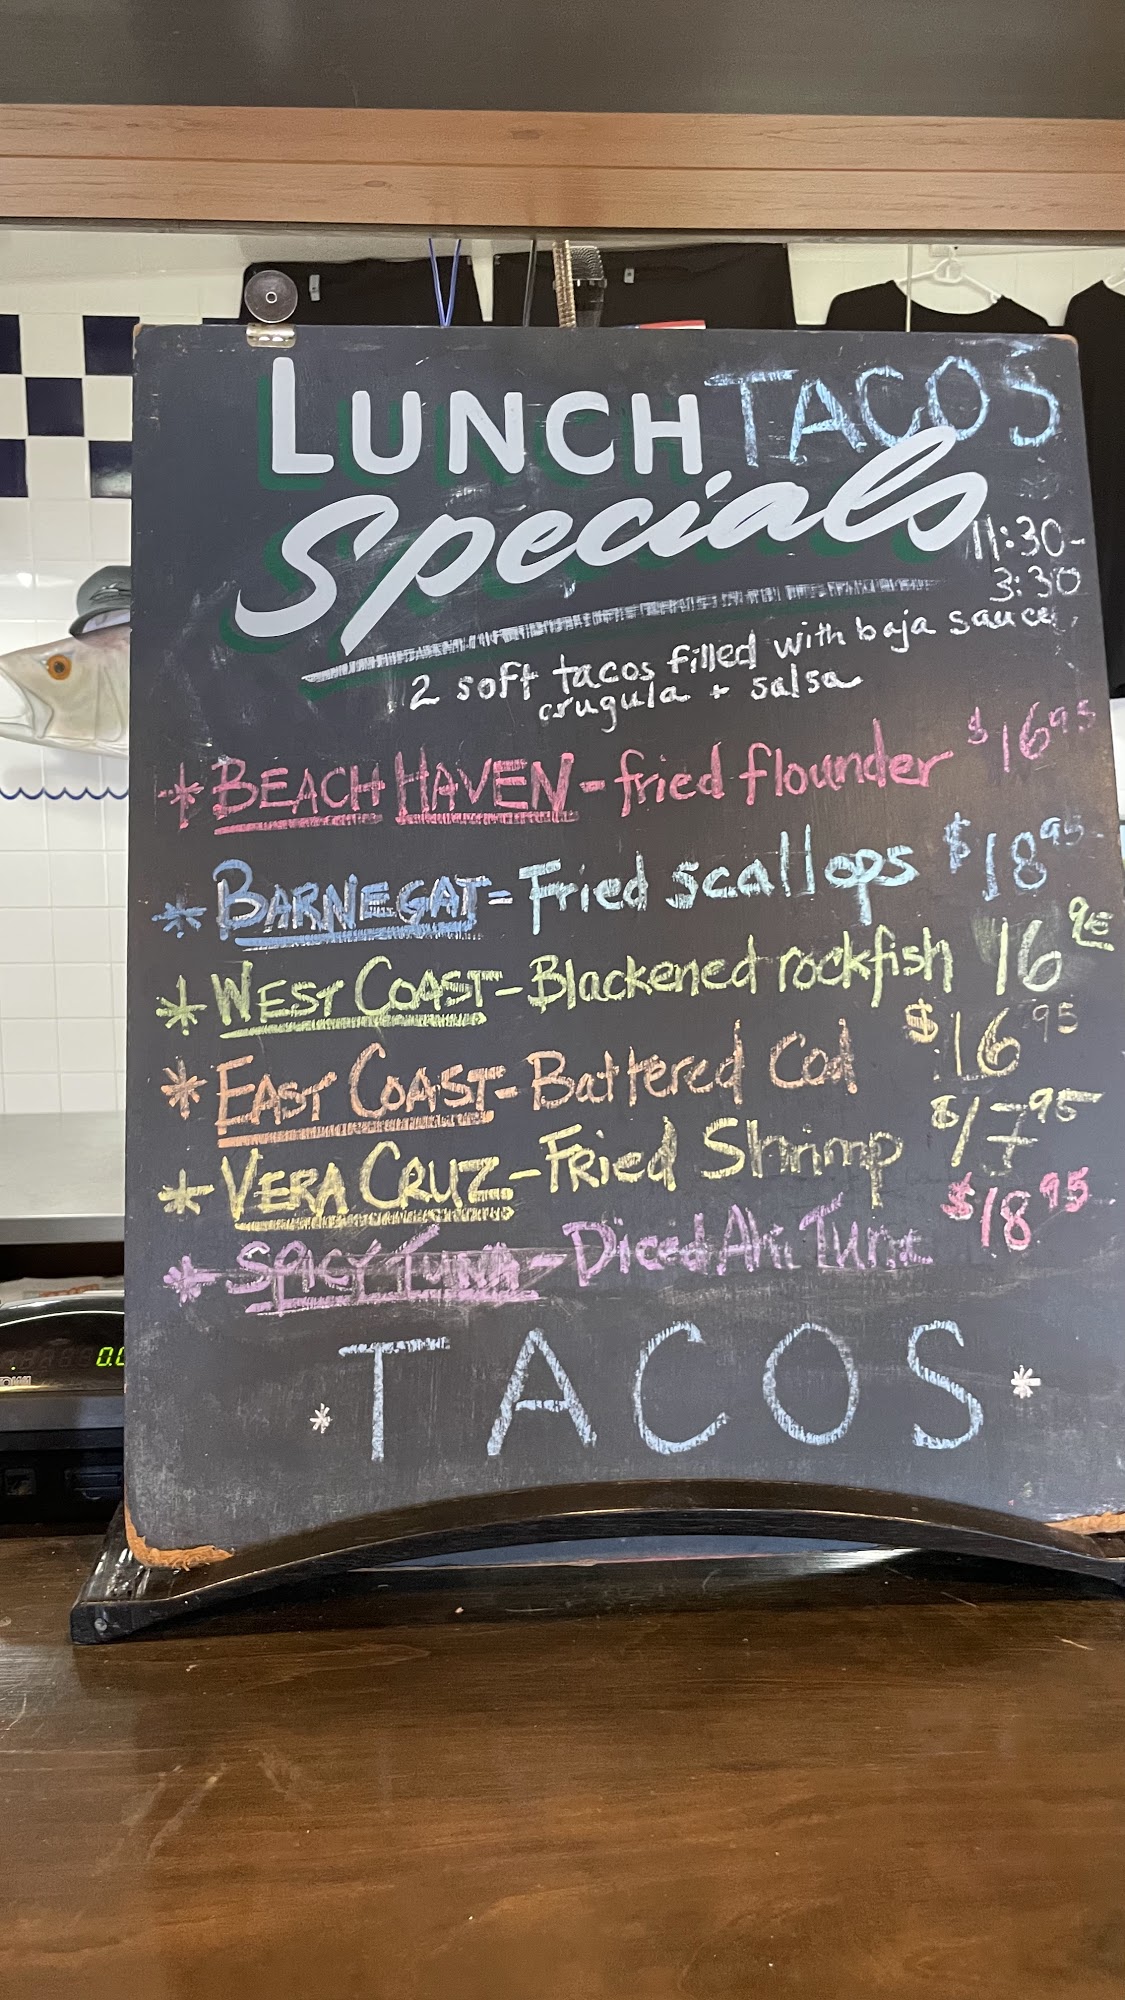 LUNCH TACOS
Specials
11:30-
3:30
2 soft tacos filled with baja sauce,
arugula + salsa
* BEACH HAVEN - fried flounder $16.95
* BARNEGAT - Fried scallops $18.95
* WEST COAST - Blackened rockfish 16.95
* EAST COAST - Battered Cod $16.95
* VERA CRUZ - Fried Shrimp $17.95
* SPICY TUNA - Diced Ahi Tuna $18.95
* TACOS *
0.0